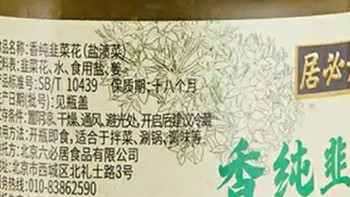 名称:香纯韭菜花(盐渍菜)
料:韭菜花、水、食用盐、姜
标准号:SB/T 10439 保质期:十八个月
产日期(批号):见瓶盖
存条件:置阴凉、干燥、通风、避光处,开启后建议冷藏
用方法:开瓶即食,适合于拌菜、涮锅、调味等
托方:北京六必居食品有限公司
址:北京市西城区北礼士路3号
热线:010-83862590
居必
香纯韭